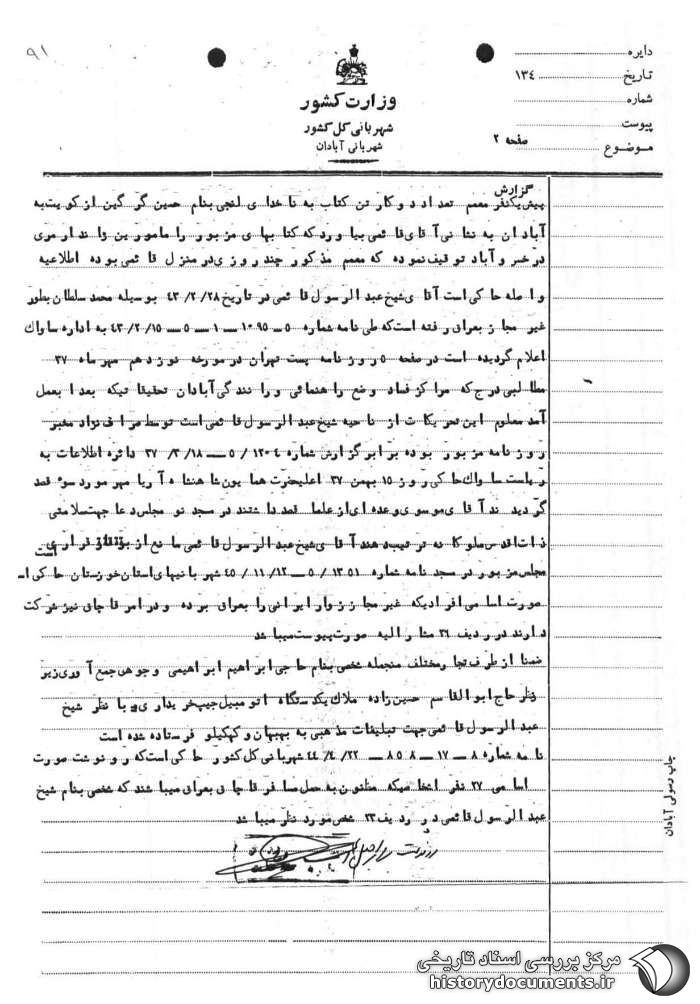 ۹۱
دایره
تاریخ ۱۳۴
شماره
پیوست
موضوع صفحه ۲
وزارت کشور
شهربانی کل کشور
شهربانی آبادان
گزارش
پیش یکنفر معمم تعداد دو کارتن کتاب به ناخدای لنجی بنام حسین گرگین از کویت به
آبادان به نشانی آقای قائمی بیاورد که کتابهای مزبور را مامورین ژاندارمری
در خسروآباد توقیف نموده که معمم مذکور چند روزی در منزل قائمی بوده اطلاعیه
واصله حاکی است آقای شیخ عبدالرسول قائمی در تاریخ ۴۳/۲/۲۸ بوسیله محمد سلطان بطور
غیر مجاز بعراق رفته است که طی نامه شماره ۵ــ۱۰۹۵ــ۱ــ۵ــ۴۳/۲/۱۵ به اداره ساواک
اعلام گردیده است در صفحه ۵ روزنامه پست تهران در مورخه نوزدهم مهرماه ۳۷
مطالبی درج که مراکز فساد وضع راهنمائی و رانندگی آبادان تحقیقاتیکه بعدا بعمل
آمد معلوم این تحریکات از ناحیه شیخ عبدالرسول قائمی است توسط مرافی نژاد مخبر
روزنامه مزبور بوده برابر گزارش شماره ۱۲۰۴ / ۵ــ۳۷/۳/۱۸ دائره اطلاعات به
ریاست ساواک حاکی روز ۱۵ بهمن ۳۷ اعلیحضرت همایون شاهنشاه آریامهر مورد سوء قصد
گردیدند آقای موسوی و عده ای از علما قصد داشتند در مسجد نو مجلس دعا جهت سلامتی
ذات اقدس ملوکانه ترتیب دهند آقای شیخ عبدالرسول قائمی مانع از برقراری
مجلس مزبور در مسجد نامه شماره ۱۳۵۱ / ۵ــ۴۵/۱۱/۱۲ شهربانیهای استان خوزستان حاکی است
صورت اسامی افرادیکه غیر مجاز زوار ایرانی را بعراق برده و در امر قاچاق نیز شرکت
دارند در ردیف ۲۶ مشارالیه صورت پیوست میباشد
ضمنا از طرف تجار مختلف منجمله شخصی بنام حاجی ابراهیم ابراهیمی وجوهی جمع آوری زیر
نظر حاج ابوالقاسم حسین زاده ملاک یکدستگاه اتومبیل جیپ خریداری و با نظر شیخ
عبدالرسول قائمی جهت تبلیغات مذهبی به بهبهان و کهکیلو فرستاده شده است
نامه شماره ۸ــ۱۷ــ۸۵۸ــ۴۴/۴/۲۲ شهربانی کل کشور حاکی است که رونوشت صورت
اسامی ۲۷ نفر اشخاصیکه مظنون به حمل مسافر قاچاق بعراق میباشند که شخصی بنام شیخ
عبدالرسول قائمی در ردیف ۲۳ شخص مورد نظر میباشد
رونوشت برابر اصل است
چاپ رسولی آبادان
مرکز بررسی اسناد تاریخی
historydocuments.ir